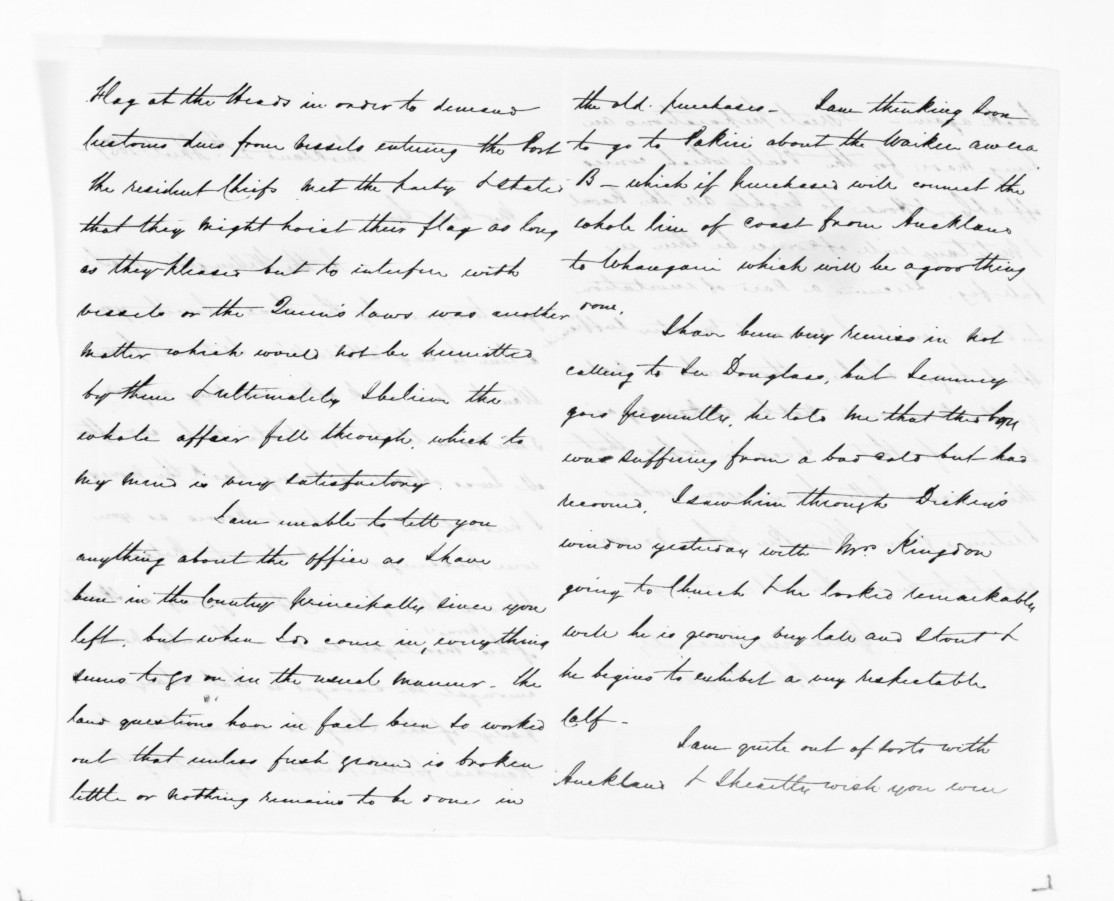 Flag at the Heads in order to demand
Customs dues from vessels entering the Port
the resident Chiefs met the party & stated
that they might hoist their flag as long
as they pleased but to interfere with
vessels or the Queen's laws was another
matter which would not be permitted
by them & ultimately I believe the
whole affair fell through, which to
my mind is very satisfactory.
I am unable to tell you
anything about the office as I have
been in the Country principally since you
left, but when I do come in, everything
seems to go on in the usual manner - the
land questions have in fact been so worked
out that unless fresh ground is broken
little or nothing remains to be done in
the old purchases - I am thinking soon
to go to Pakiri about the
B - which if purchased will connect the
whole line of coast from Auckland
to Whangarei which will be a good thing
done.
I have been very remiss in not
calling to see Douglass, but
goes frequently, he told me that the boy
was suffering from a bad cold but had
recovered. I saw him through Dickey's
window yesterday with Mrs Kingdon
going to Church & he looked remarkably
well he is growing very tall and stout &
he begins to exhibit a very respectable
Calf -
I am quite out of sorts with
Auckland & I heartily wish you were